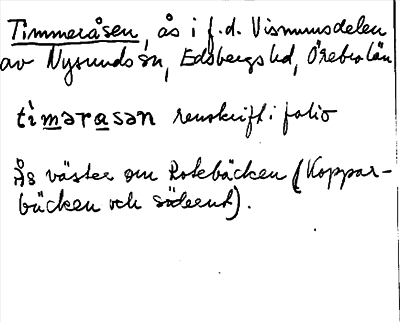 Timmeråsen, ås i f.d. Vismumsdelen
av Nysunds sn, Edsbergs hd, Örebro län
tìmərasən renskrift i folio
Ås väster om Rotebäcken (Koppar-
bäcken och söderut).